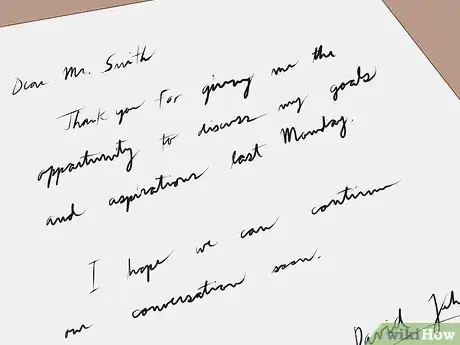 Dear Mr. Smith
Thank you for giving me the
opportunity to discuss my goals
and aspirations last Monday.
I hope we can continue
our conversation soon.
David
wikiHow